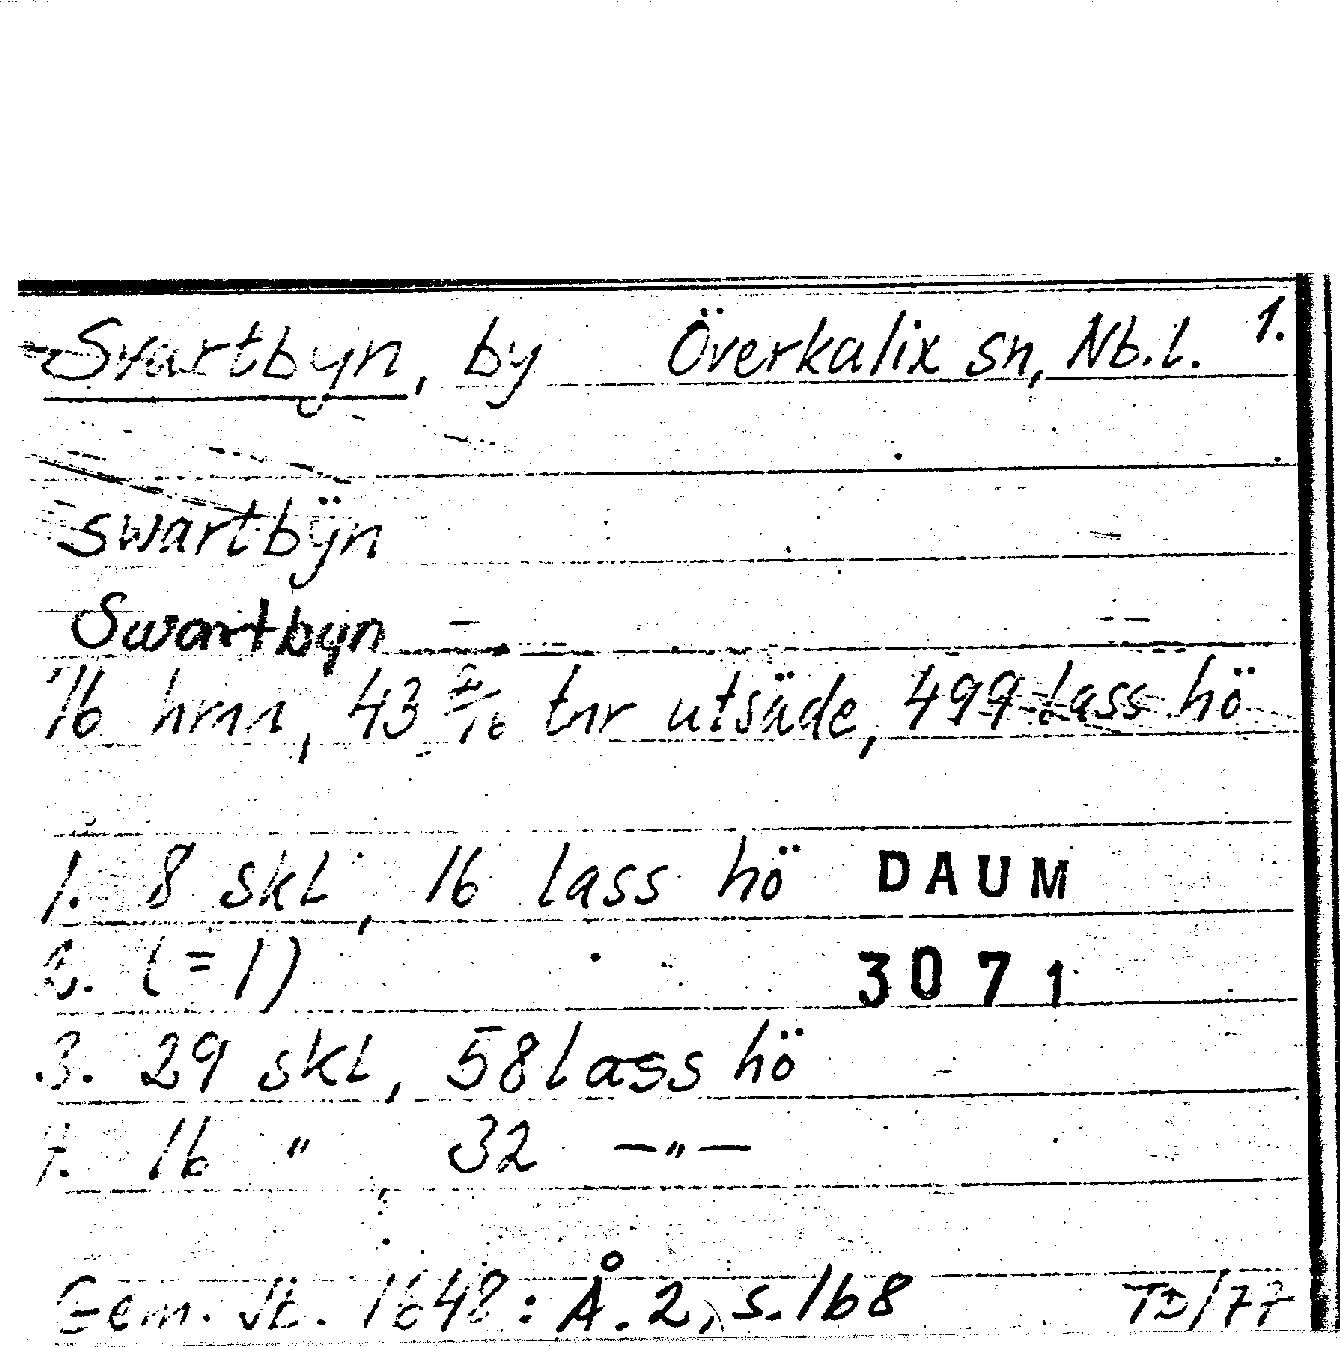 Svartbyn, by Överkalix sn, Nb.l. 1.
Swartbÿn
Swartbyn
16 hmn, 43 tnr utsäde, 499 lass hö
1. 8 skl, 16 lass hö DAUM
2. (=1) 3071
3. 29 skl, 58 lass hö
4. 16 " , 32 —"—
Gem. Jb. 1648: Å.2, s.168 TD/77